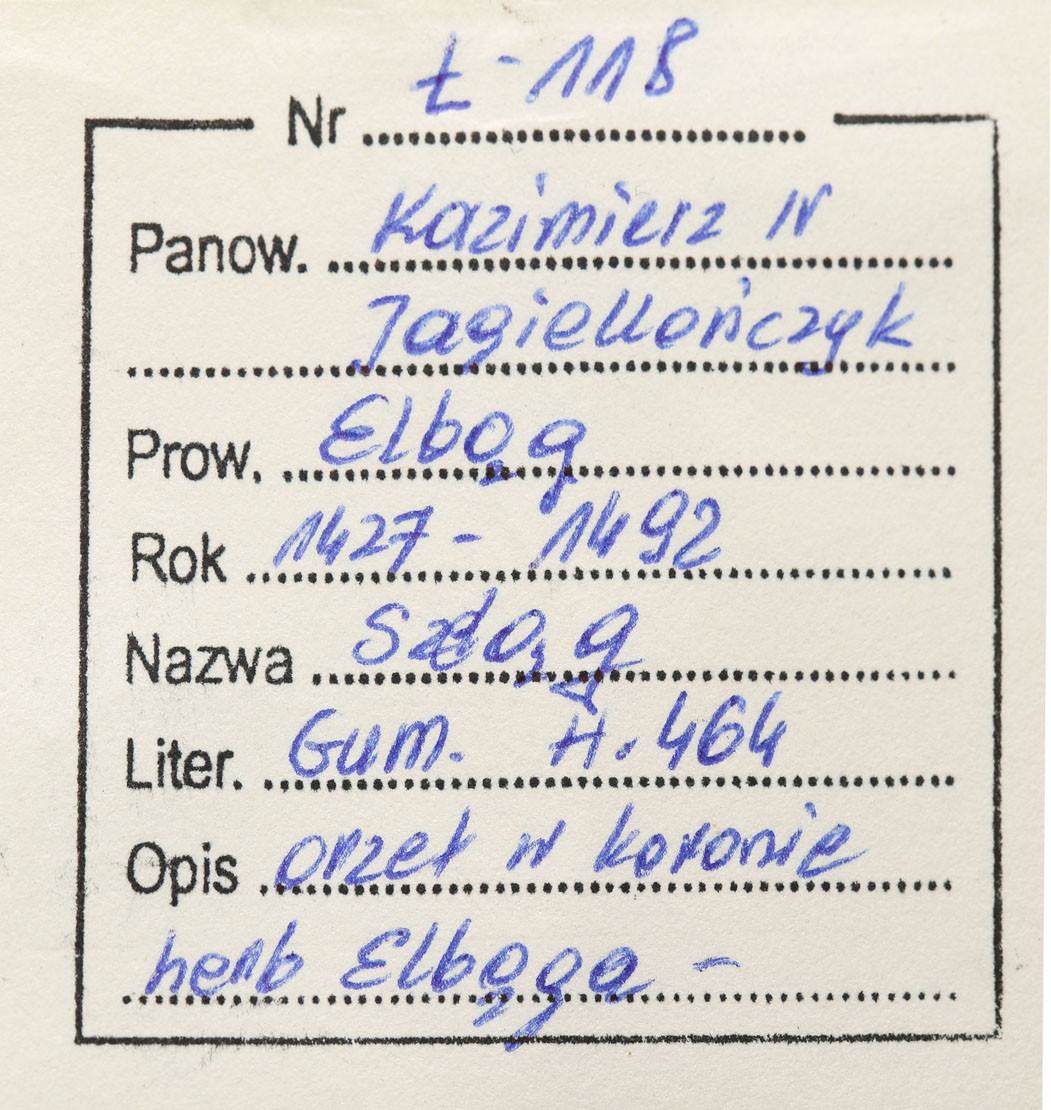 Nr Ł-118
Panow. Kazimierz IV
Jagiellończyk
Prow. Elbąg
Rok 1427 - 1492
Nazwa Szeląg
Liter. Gum. H. 464
Opis orzeł w koronie
herb Elbąga -